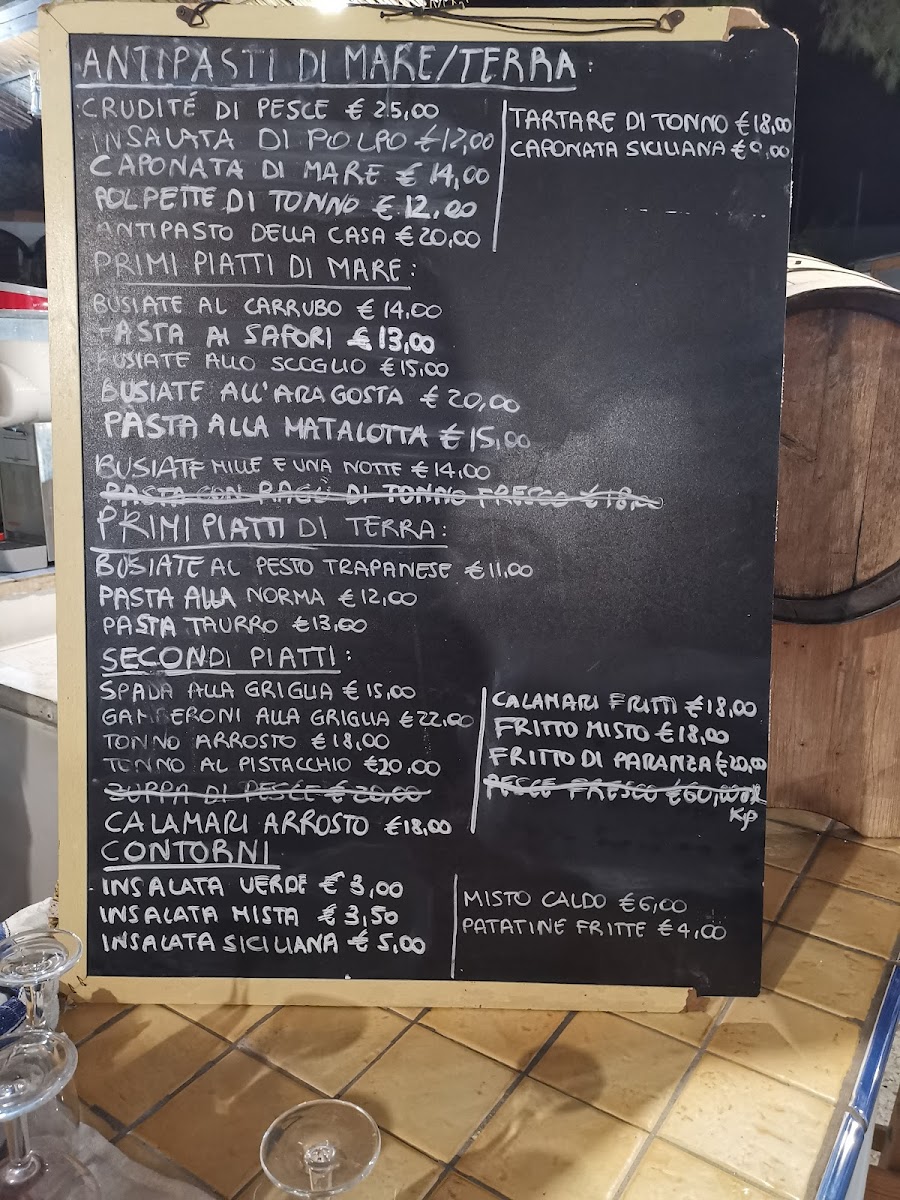 ANTIPASTI DI MARE/TERRA:
CRUDITÉ DI PESCE € 25,00
INSALATA DI POLPO €12,00
CAPONATA DI MARE € 14,00
POLPETTE DI TONNO € 12,00
ANTIPASTO DELLA CASA € 20,00
TARTARE DI TONNO € 18,00
CAPONATA SICILIANA
PRIMI PIATTI DI MARE:
BUSIATE AL CARRUBO € 14,00
PASTA AI SAPORI €13,00
BUSIATE ALLO SCOGLIO €15,00
BUSIATE ALL'ARAGOSTA € 20,00
PASTA ALLA MATALOTTA € 15,00
BUSIATE MILLE E UNA NOTTE € 14,00
PASTA CON RAGÙ DI TONNO FRESCO €18,00
PRIMI PIATTI DI TERRA:
BUSIATE AL PESTO TRAPANESE €11,00
PASTA ALLA NORMA €12,00
PASTA TAURRO €13,00
SECONDI PIATTI:
SPADA ALLA GRIGLIA € 15,00
GAMBERONI ALLA GRIGLIA €22,00
TONNO ARROSTO €18,00
TONNO AL PISTACCHIO €20,00
ZUPPA DI PESCE € 20,00
CALAMARI ARROSTO €18,00
CALAMARI FRITTI €18,00
FRITTO MISTO €18,00
FRITTO DI PARANZA €20,00
PESCE FRESCO €60,00
Kg
CONTORNI
INSALATA VERDE € 3,00
INSALATA MISTA € 3,50
INSALATA SICILIANA € 5,00
MISTO CALDO €6,00
PATATINE FRITTE € 4,00